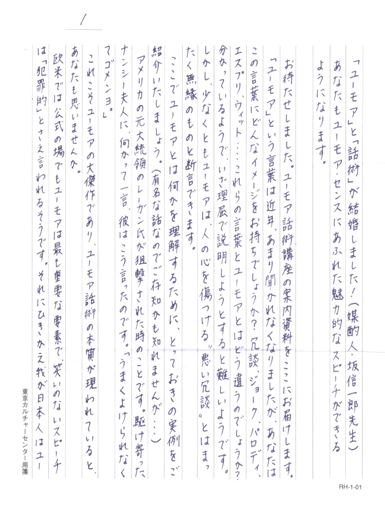 1
「ユーモア」と「話術」が結婚しました！（媒酌人・坂信一郎先生）
あなたもユーモアセンスにあふれた魅力的なスピーチができる
ようになります。
お待たせしました、ユーモア話術講座の案内資料をここにお届けします。
「ユーモア」という言葉は近年、あまり聞かれなくなりましたが、あなたは
この言葉にどんなイメージをお持ちでしょうか？冗談、ジョーク、パロディ、
エスプリ、ウィット…、これらの言葉とユーモアとはどう違うのでしょうか？
分かっているようで、いざ理屈で説明しようとすると難しいようです。
しかし、少なくともユーモアは人の心を傷つける〝悪い冗談〟とはまっ
たく無縁のものと断言できます。
ここでユーモアとは何かを理解するために、とっておきの実例をご
紹介いたしましょう。（有名な話なのでご存知かも知れませんが…）
アメリカの元大統領のレーガン氏が狙撃された時のことです。駆け寄った
ナンシー夫人に、向かって一言、彼はこう言ったのです。「うまくよけられなく
てゴメンヨ」。
これこそユーモアの大傑作であり、ユーモア話術の本質が現われていると、
あなたも思いませんか。
欧米では公式の場でもユーモアは最も重要な要素で、笑いのないスピーチ
は「犯罪的」とさえ言われるそうです。それにひきかえ我が日本人はユー
東京カルチャーセンター用箋
RH-1-01